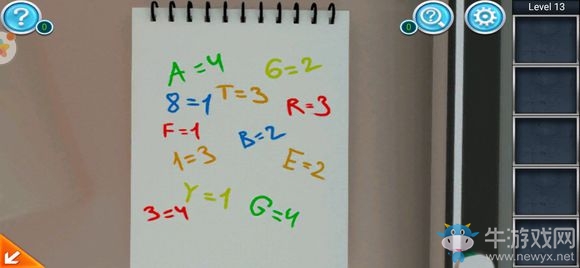 Level 13
?
0
0
A=4
6=2
8=1
T=3
R=3
F=1
B=2
1=3
E=2
Y=1
3=4
G=4
牛游戏网
www.newyx.net